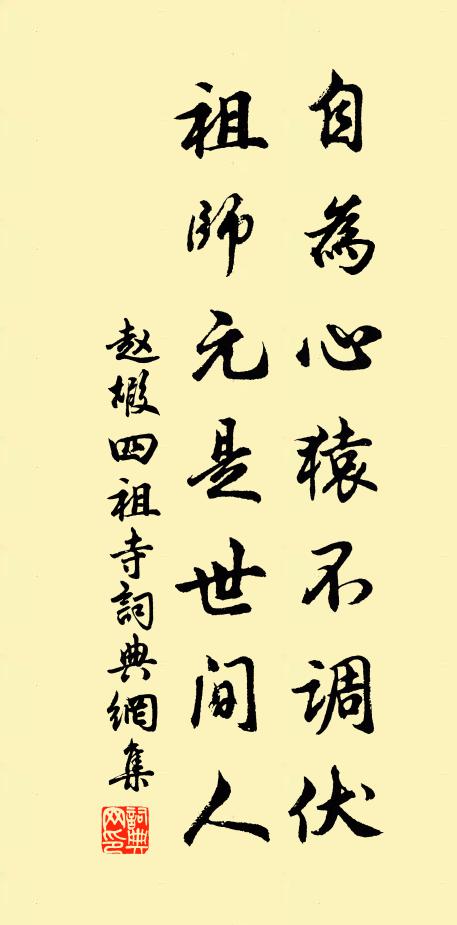 自為心猿不調伏
祖師元是世間人
赵嘏四祖寺詞典網集
詞典網印